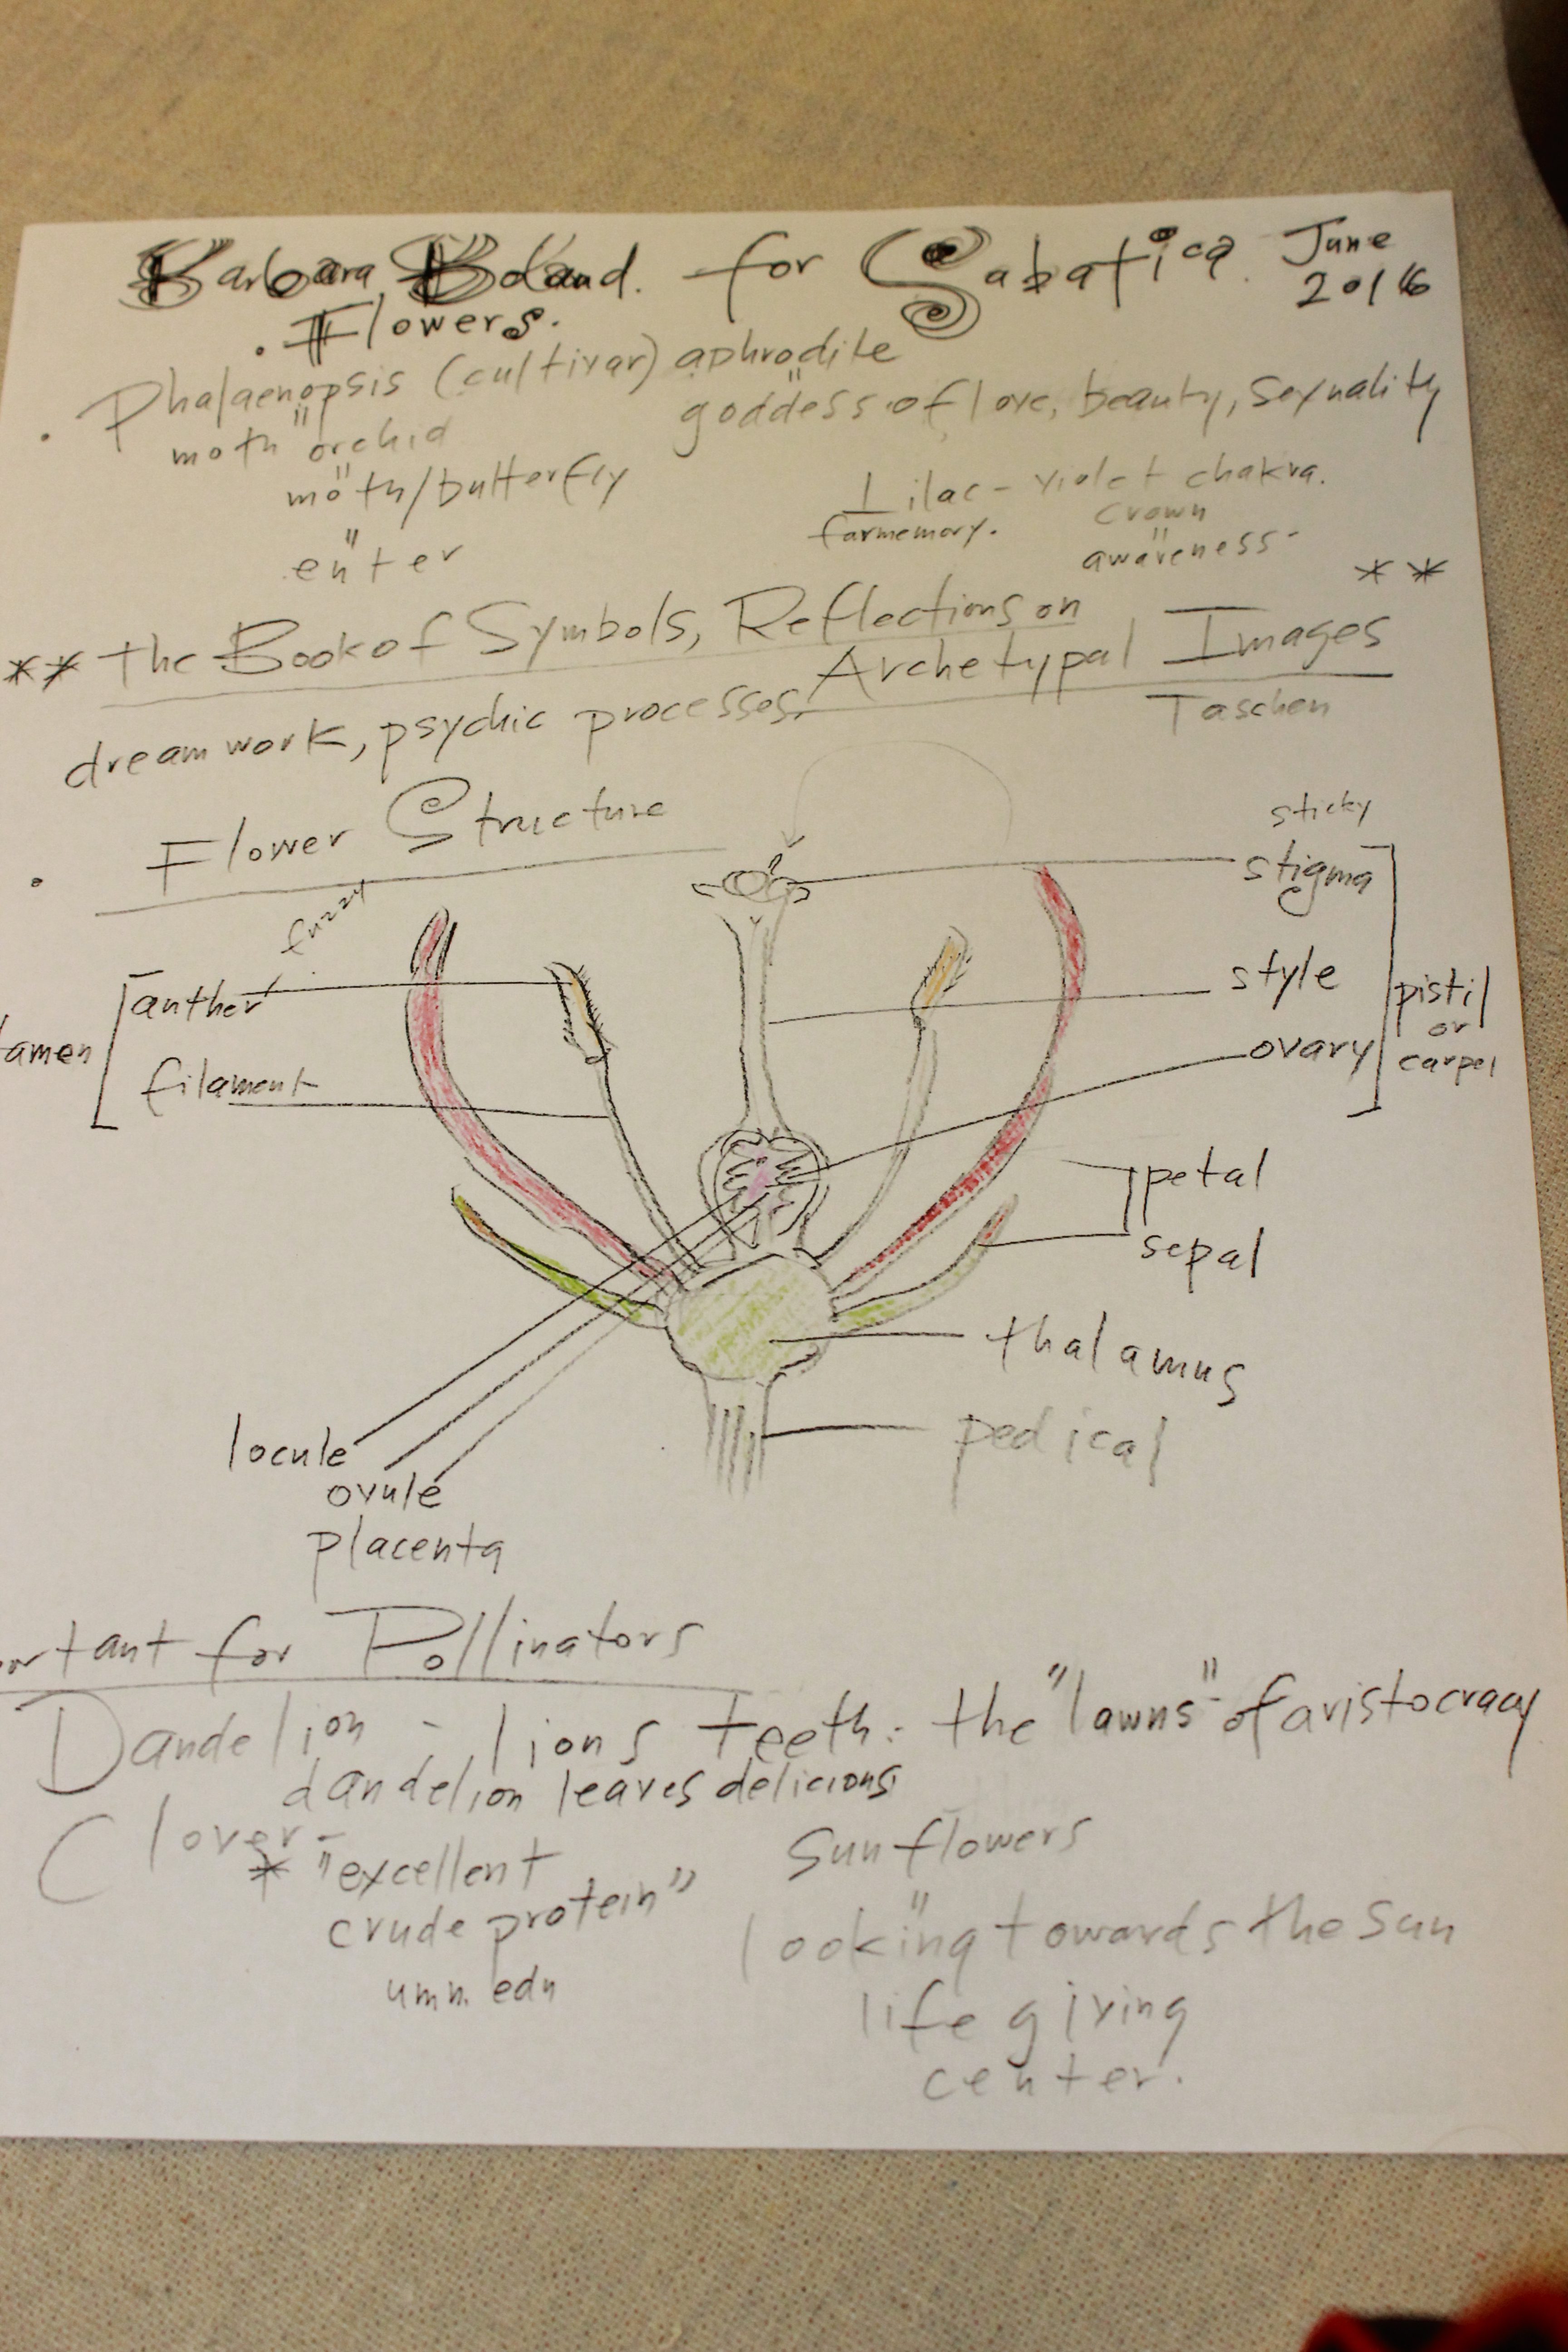 Barbara Boland. for Sabatica. June 2016
. Flowers.
. Phalaenopsis (cultivar) aphrodite
" "
moth orchid goddess of love, beauty, sexuality
"
moth/butterfly Lilac - violet chakra.
farmemory. crown
" "
enter awareness
**
** the Book of Symbols, Reflections on
Archetypal Images
dream work, psychic processes. Taschen
. Flower Structure
sticky
stigma
fuzzy
anther
style
pistil
or
carpel
tamen
ovary
filament
petal
sepal
thalamus
pedical
locule
ovule
placenta
ortant for Pollinators
Dandelion - lions teeth: the "lawns" of aristocracy
dandelion leaves delicious
Clover - Sunflowers
* "excellent "
crude protein" looking towards the sun
umn. edu life giving
center.